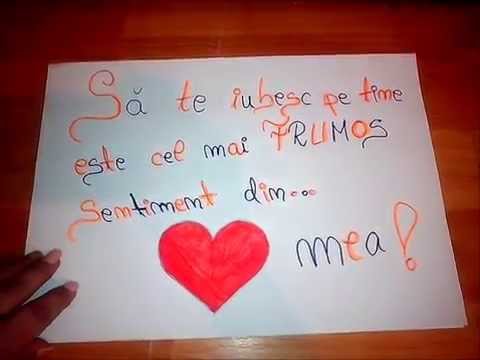 Să te iubesc pe time
este cel mai FRUMOS
Sentiment din...
mea!